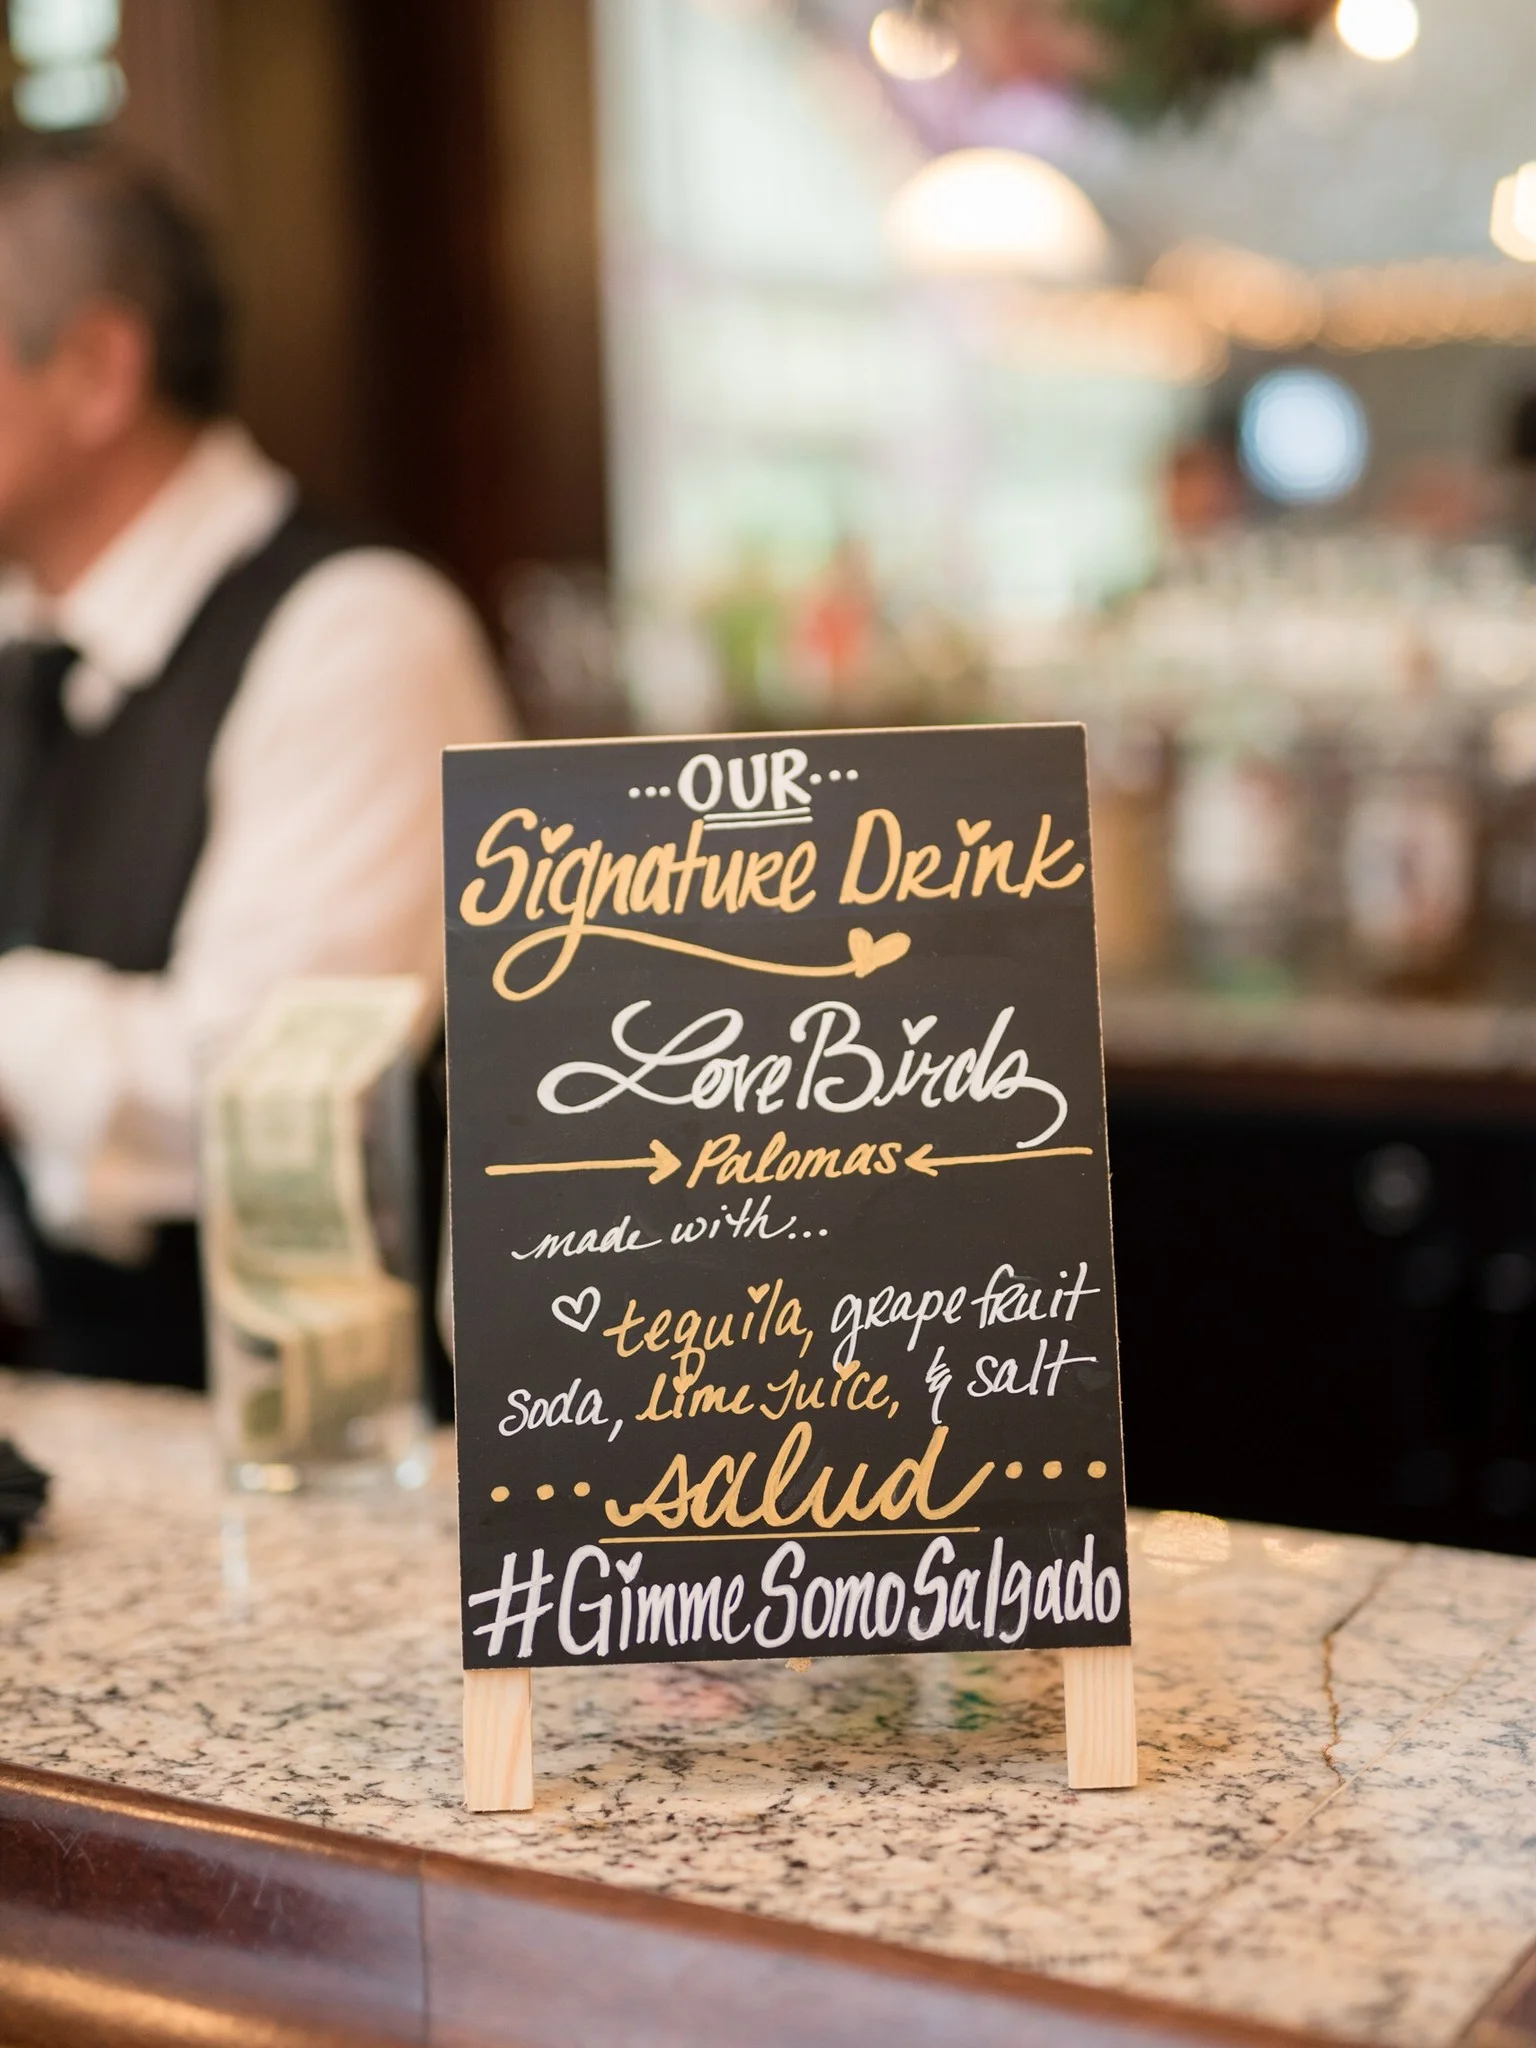 ...OUR...
Signature Drink
LoveBirds
Palomas
made with...
tequila, grapefruit
soda, lime juice, & salt
...salud...
#GimmeSomoSalgado